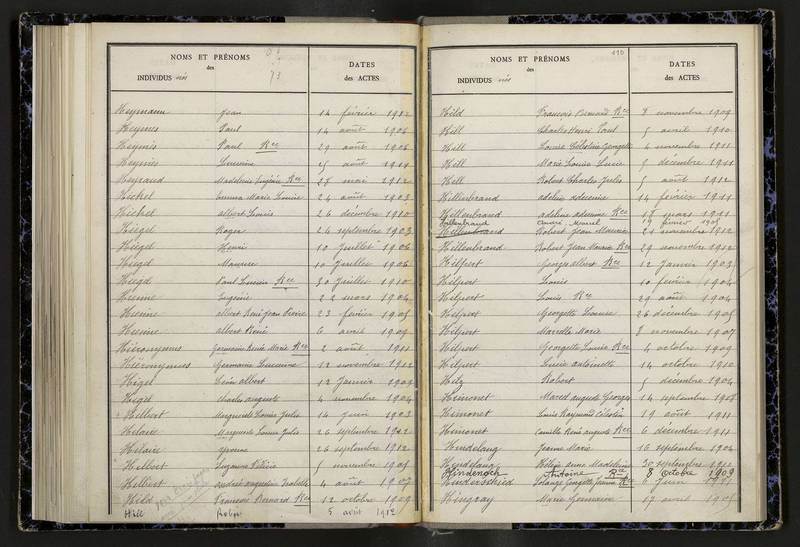 NOMS ET PRÉNOMS
des
INDIVIDUS nés
DATES
des ACTES
73
Heymann Jean 14 février 1912
Heymes Paul 14 août 1906
Heymès Paul Rec 29 août 1906
Heymès 25 août 1911
Madeleine Eugénie Rec 28 mai 1912
Hichel Emma Marie Louise 24 août 1903
Hichel Albert Louis 26 décembre 1910
Hiegel Roger 24 septembre 1903
Hiegel Henri 10 juillet 1906
Hiegel Maurice 10 juillet 1906
Paul Rec 30 juillet 1910
Hienne Eugénie 22 mars 1904
Hienne albert René Jean Pierre 23 février 1905
Hienne albert René 6 avril 1909
Hiéronymus Germaine Renée Marie Rec 2 août 1911
Hiéronymus Germaine 12 novembre 1912
Higel Léon albert 12 Janvier 1909
Higel Charles auguste 4 novembre 1904
Hilbert Marguerite Louise Julie 14 juin 1903
Hilaire Marguerite Louise Julie 26 septembre 1912
Hilaire Yvonne 26 septembre 1912
Hilbert Suzanne Félicie 5 novembre 1905
Hilbert augustine Isabelle 4 août 1907
Hild François Bernard Rec 12 octobre 1909
Hill Robert 5 août 1912
NOMS ET PRÉNOMS
des
INDIVIDUS nés
110
DATES
des ACTES
Hild François Bernard Rec 8 novembre 1909
Hill Charles Henri Paul 5 avril 1910
Hill Louise Célestine Georgette 4 novembre 1911
Hill Marie Louise Lucie 9 décembre 1911
Hill Robert Charles Jules 5 août 1912
Hillenbrand adeline adrienne 14 février 1911
Hillenbrand adeline adrienne Rec 18 mars 1911
Hillenbrand André Marcel 19 février 1905
Hillenbrand Robert Jean Maurice 21 novembre 1912
Hillenbrand Robert Jean Maurice Rec 29 novembre 1912
Hilpert Georges albert Rec 12 Janvier 1903
Hilpert Louis 10 février 1904
Hilpert Louis Rec 29 août 1904
Hilpert Georgette Louise 26 décembre 1905
Hilpert Marcelle Marie 8 novembre 1907
Hilpert Georgette Louise Rec 4 octobre 1909
Hilpert Lucie antoinette 14 octobre 1910
Hilz Robert 5 décembre 1904
Himonet Marcel auguste Georges 14 septembre 1908
Himonet Louis Raymond Célestin 19 août 1911
Himonet Camille René auguste Rec 6 décembre 1911
Hindelang Jeanne Marie 16 septembre 1904
Hindelang Hélène anne Madeleine 30 septembre 1912
Hindenoch Antoine Rec 8 Octobre 1909
Hinderschied Solange Georgette Jeanne Rec 6 juin 1911
Hingray Marie Germaine 17 avril 1905